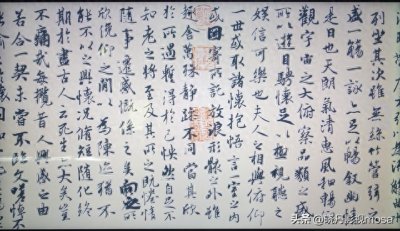 列坐其次雖無絲竹管弦之
盛一觴一詠亦足以暢敘幽情
是日也天朗氣清惠風和暢仰
觀宇宙之大俯察品類之盛
所以遊目騁懷足以極視聽之
娛信可樂也夫人之相與俯仰
一世或取諸懷抱悟言一室之內
或因寄所託放浪形骸之外雖
趣舍萬殊靜躁不同當其欣
於所遇暫得於己快然自足不
知老之將至及其所之既惓情
隨事遷感慨係之矣向之所
欣俛仰之閒以為陳迹猶不
能不以之興懷況脩短隨化終
期於盡古人云死生亦大矣豈
不痛哉每攬昔人興感之由
若合一契未嘗不臨文嗟悼不
头条